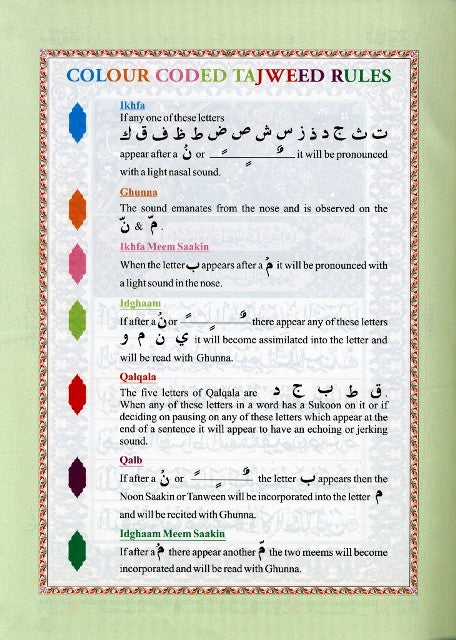 COLOUR CODED TAJWEED RULES
Ikhfa
If any one of these letters
ت ث ج د ذ ز س ش ص ض ط ظ ف ق ك
appear after a نْ or ــًــ ــٍــ ــٌــ it will be pronounced
with a light nasal sound.
Ghunna
The sound emanates from the nose and is observed on the
نّ & مّ .
Ikhfa Meem Saakin
When the letter ب appears after a مْ it will be pronounced with
a light sound in the nose.
Idghaam
If after a نْ or ــًــ ــٍــ ــٌــ there appear any of these letters
ي ن م و it will become assimilated into the letter and
will be read with Ghunna.
Qalqala
The five letters of Qalqala are ق ط ب ج د .
When any of these letters in a word has a Sukoon on it or if
deciding on pausing on any of these letters which appear at the
end of a sentence it will appear to have an echoing or jerking
sound.
Qalb
If after a نْ or ــًــ ــٍــ ــٌــ the letter ب appears then the
Noon Saakin or Tanween will be incorporated into the letter م
and will be recited with Ghunna.
Idghaam Meem Saakin
If after a مْ there appear another مّ the two meems will become
incorporated and will be read with Ghunna.